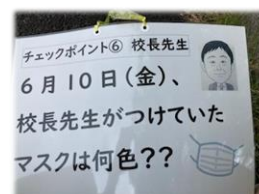 チェックポイント⑥ 校長先生
6月10日(金)、
校長先生がつけていた
マスクは何色??